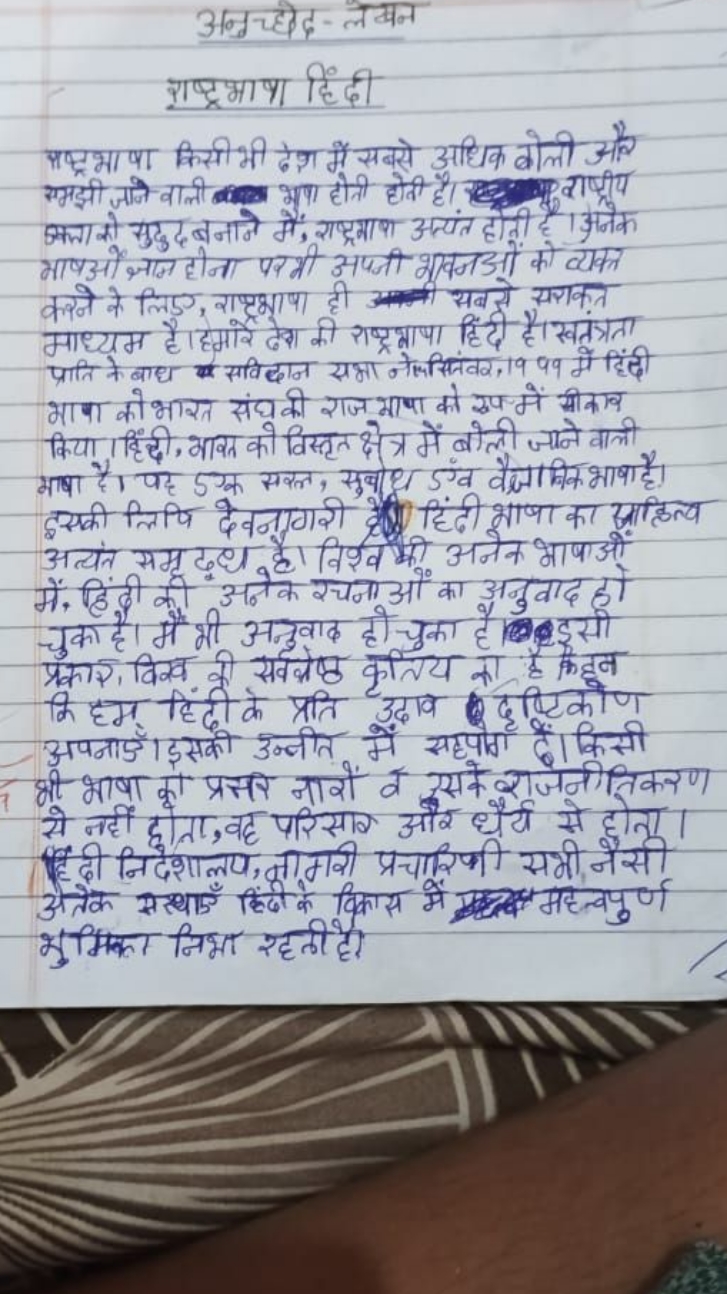 अनुच्छेद-लेखन
राष्ट्रभाषा हिंदी
राष्ट्रभाषा किसी भी देश में सबसे अधिक बोली और
समझी जाने वाली भाषा होती होती है। राष्ट्रीय
को सुदुढ बनाने में, राष्ट्रभाषा अत्यंत होती है । अनेक
भाषओं ज्ञान होना पर भी अपनी भावनओं को व्यक्त
करने के लिए, राष्ट्रभाषा ही सबसे सशक्त
माध्यम है। हमारे देश की राष्ट्रभाषा हिंदी है। स्वतंत्रता
प्राति के बाध सविधान सभा ने सितंबर, १९४९ में हिंदी
भाषा को भारत संघ की राजभाषा को रूप में
किया । हिंदी, भारत को विस्तृत क्षेत्र में बोली जाने वाली
भाषा है। यह एक सरल, सुबोध एंव वैज्ञानिक भाषा है।
इसकी लिपि देवनागरी है हिंदी भाषा का साहित्य
अत्यंत समृद्ध है। विश्व की अनेक भाषाओं
में, हिंदी की अनेक रचनाओं का अनुवाद हो
चुका है। मैं भी अनुवाद हो चुका है। इसी
प्रकार, विश्व की सर्वश्रेष्ठ का है
कि हम हिंदी के प्रति उदाव दृष्टिकोण
अपनाएँ। इसकी उन्नीत में सहयोग दें। किसी
भी भाषा का प्रसार नारों व उसके राजनीतिकरण
से नहीं होता, वह परिसार और धैर्य से होता ।
हिंदी निदेशालय, नागरी प्रचारिणी सभी जैसी
अनेक संस्थाएँ हिंदी के विकास में महत्वपुर्ण
भुमिका निभा रहती है।